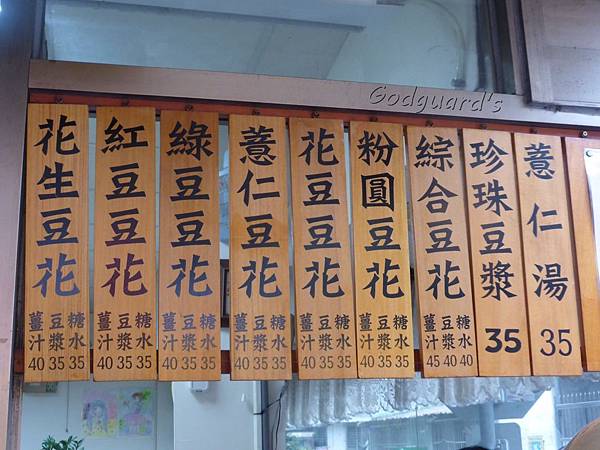 Godguard's
花生豆花
薑汁 豆漿 糖水
40 35 35
紅豆豆花
薑汁 豆漿 糖水
40 35 35
綠豆豆花
薑汁 豆漿 糖水
40 35 35
薏仁豆花
薑汁 豆漿 糖水
40 35 35
花豆豆花
薑汁 豆漿 糖水
40 35 35
粉圓豆花
薑汁 豆漿 糖水
40 35 35
綜合豆花
薑汁 豆漿 糖水
45 40 40
珍珠豆漿
35
薏仁湯
35